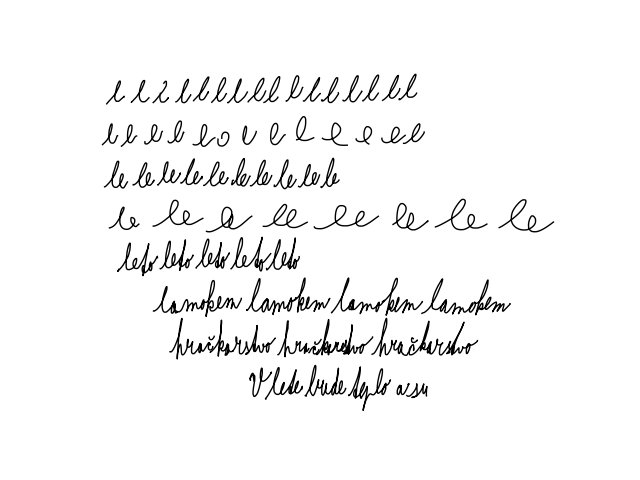 l l l l l l l l l l l l l l l
le le le le le le le le le le
le le le le le le le
leto leto leto leto leto
lamokem lamokem lamokem lamokem
hračkarstvo hračkarstvo hračkarstvo
V lete bude teplo a su